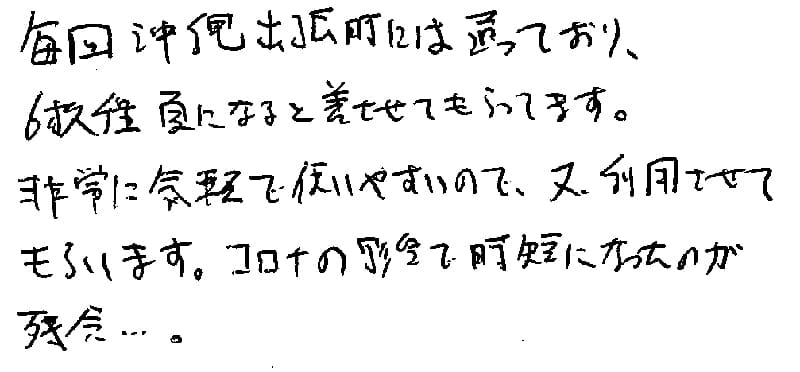 毎回沖縄出張所には通っており、
6枚程夏になると着させてもらってます。
非常に気軽で使いやすいので、又、利用させて
もらいます。コロナの影響で時短になったのが
残念…。